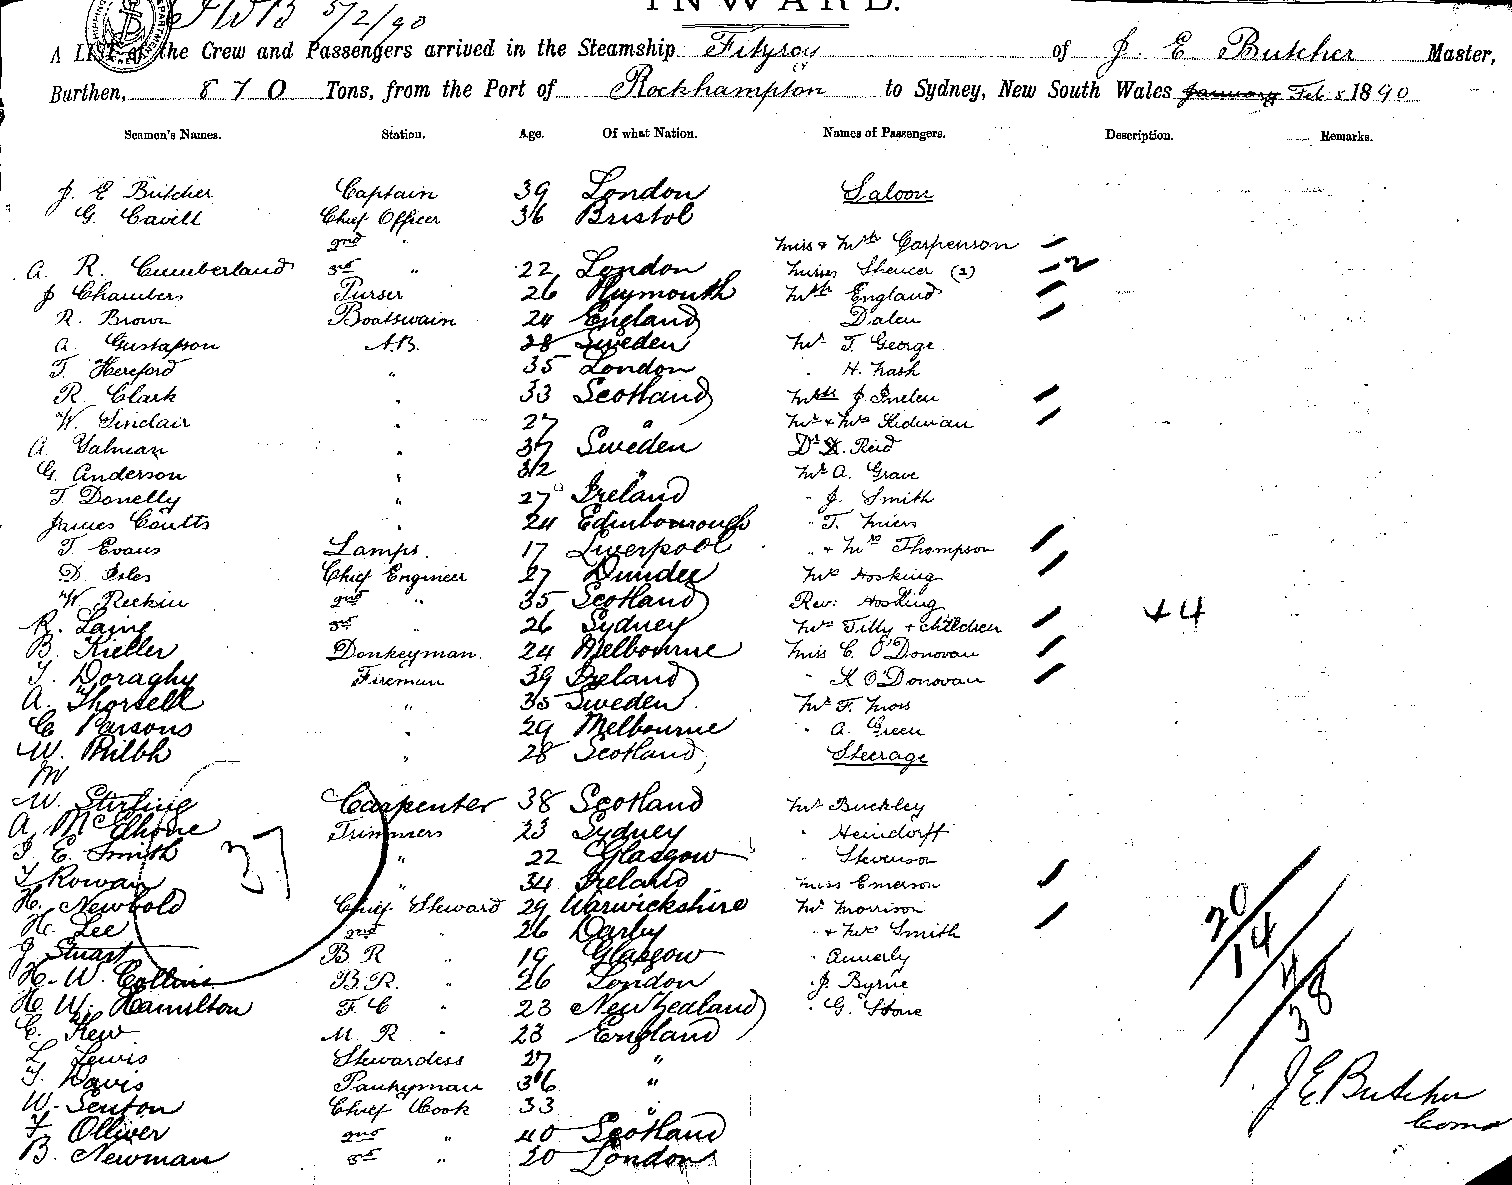 5/2/90
INWARD.
A LIST of the Crew and Passengers arrived in the Steamship Fitzroy of J. E Butcher Master,
Burthen, 870 Tons, from the Port of Rockhampton to Sydney, New South Wales January Feb 5 1890
Seamen's Names. Station. Age. Of what Nation. Names of Passengers. Description. Remarks.
J. E Butcher Captain 39 London Saloon
G. Cavill Chief Officer 36 Bristol
2nd " Miss & Mrs Carpenson
A. R. Cumberland 3rd " 22 London Misses Spencer (2) 2
J Chambers Purser 26 Plymouth Mrs England
R. Brown Boatswain 24 England Daleu
A. Gustafson A.B. 28 Sweden Mr T. George
T. Hereford " 35 London " H. Nash
R. Clark " 33 Scotland J
W. Sinclair " 27 " Mr & Mrs Kidman
A. " 37 Sweden Dr Reid
G. Anderson " 32 " Mr A. Grave
T. Donelly " 27 Ireland " J. Smith
James Coutts " 24 Edinbourough " T. Miers
T. Evans Lamps. 17 Liverpool " & Mrs Thompson
D. Isles Chief Engineer 27 Dundee Mrs Hosking
W. Reekin 2nd " 35 Scotland Rev: Hosking
R. Laing 3rd " 26 Sydney Mrs Tilly + children +4
B. Kieller Donkeyman 24 Melbourne Miss C. O'Donovan
T. Doraghy Fireman 39 Ireland " K O'Donovan
A. Thorsell " 35 Sweden Mr F. Moss
C Parsons " 29 Melbourne " A. Green
W. " 28 Scotland, Steerage
M
W. Stirling Carpenter 38 Scotland Mr Buckley
A. McElhone Trimmers 23 Sydney " Heindorff
J. E. Smith " 22 Glasgow " Stevenson
T Rowan " 34 Ireland Miss Emerson
37
H. Newbold Chief Steward 29 Warwickshire Mr Morrison
H. Lee 2nd " 26 Darby " + Mrs Smith
J. Stuart B R " 19 Glasgow " Annerly
H. W. Collins B.R. " 26 London " J. Byrne
H W. Hamilton F. C " 23 New Zealand " G. Stone
C. Kew M R " 23 England
L. Lewis Stewardess 27 "
T. Davis Pantryman 36 "
W. Senton Chief Cook 33 "
F Olliver 2nd " 40 Scotland
B. Newman 3rd " 20 London
20
14
4
38
J E Butcher
Comd